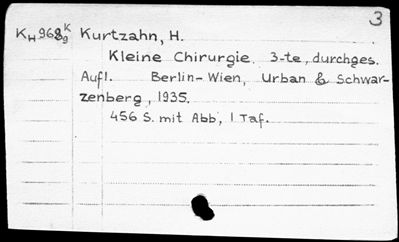 3
KH968 K/9 Kurtzahn, H.
Kleine Chirurgie. 3-te, durchges.
Aufl. Berlin-Wien, Urban & Schwar-
zenberg, 1935.
456 S. mit Abb., 1 Taf.